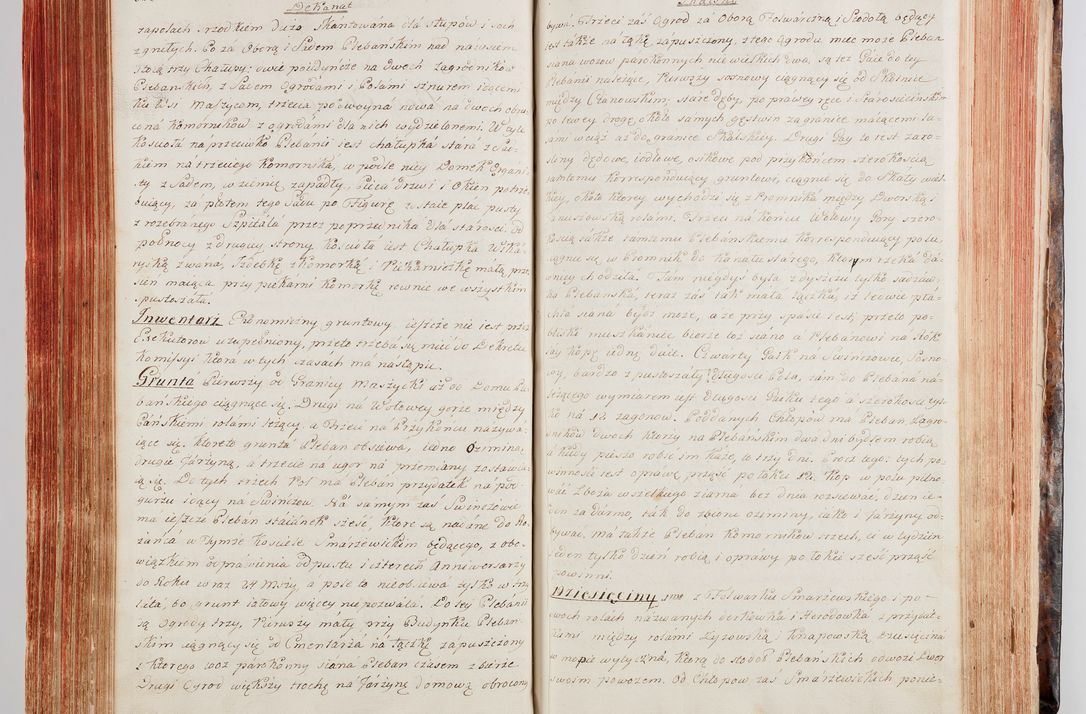 Dekanat
zapolach srzodkiem Duża Skantowana dla słupów i soch
zgniłych. Poza Oborą i Sadem Plebańskim nad nawsiem
stoią trzy Chałupy: dwie poiedyńcze na dwoch zagrodników
Plebańskich, z Sadem Ogrodami i Polami sznurem idącemi
ku Wsi Maszycom, trzecia podwoyna nowa na dwoch obró-
cona Komorników z ogrodami dla nich wydzielonemi. W tyle
Kościoła naprzeciwko Plebanii iest chałupka stara z Sad-
kiem na trzeciego Komornika, w podle niey Domek Organi-
sty z Sadem, w ziemię zapadły, Pieca Drzwi i Okien potrze-
buiący, za płotem tego Sadu po Figurę zostaie plac pusty
z rozebranego Szpitala przez poprzednika dla starości. Od
połnocy z drugiey strony Kościoła iest Chałupka Wika-
ryską zwana, Izdebkę z Komorką i Piekarniczkę małą, prze-
sień maiąca przy piekarni Komorkę rownie we wszystkim
spustoszała.
Inwentarz Ekonomiczny gruntowy, ieszcze nie iest przez
Exekutorow uzupełniony, przeto trzeba się mieć do Dekretu
Komissyi która w tych czasach ma nastąpić.
Grunta Pierwszy od Granicy Maszycki aż do Domu Ple-
bańskiego ciągnące się. Drugi na Wołowey gorze między
Pańskiemi rolami leżący, a Trzeci na Przykońcu nazywa-
iące się, ktorete grunta Pleban obsiewa, iedno Ozimino,
drugie Jarzyną, a trzecie na ugor na przemiany zostawia-
ią się. Do tych trzech Pol ma Pleban przydatek na pod-
gurzu idący na Swińczow. Na samym zaś Swinczowie
ma ieszcze Pleban staianek sześć, ktore są nadane do Ró-
żańca w Tymże Kosciele Smardzewickim będącego, z obo-
wiązkiem odprawienia odpustu i czterech Anniwersarzy
do Roku wraz 24 Mszy, a pole to nieobsiewa tylko w trzy
lata, bo grunt iałowy więcey nie pozwala. Do tey Plebanii
są ogrody trzy, Pierwszy mały przy Budynku Pleban-
skim ciągnący się od Cmentarza na łączkę zapuszczony
z ktorego woz parokonny siana Pleban czasem zbierze
Drugi Ogrod większy trochę na Jarzynę domową obrocony
bywa. Trzeci zaś Ogrod za Oborą Folwarczną i Stodołą będący
iest także na łąkę zapuszczony, z tego Ogrodu mieć może Pleban
siana wozow parokonnych nie wielkich dwa, są też Gaie do tey
Plebanii należące, Pierwszy sosnowy ciągnący się od Skotnice
między Cianowskim, stare dęby, po prawey ręce i Starościńskim
po lewey drogę, około samych gęstwin za granice maiącemi la-
sami wciąż aż do granice Skalskiey. Drugi Gay to iest zaro-
śliny dębowe, iodłowe, osikowe pod przykońcem szerokością
tamtemu korrespondujący gruntowi, ciągnie się do Skały wiel-
kiey, około ktorey wychodzi się z Promnika między Dworską i
Januszowską rolami. Trzeci na końcu Wołowey Gory szero-
kością także tamtemu Plebańskiemu korrespondujący polu,
ciągnie się w Promnik do kanału starego, ktorym rzeka da-
wniey chodziła. Tam niegdyś była z dyszczu tylko sadzaw-
ka Plebańska, teraz zaś iak mała łączka, iż ledwie pła-
chta siana bydź może, a że przy spasie iest, przeto po-
bliski mieszkaniec bierze toż siano a Plebanowi na Rok
say kopę iedną daie. Czwarty Gaik na Swinczowie, Sosno-
wy, bardzo spustoszały długości Pola, tam do Plebana na-
leżącego wymiarem iest długości Gaiku tego a szerokości tyl-
ko na 12 zagonow. Poddanych Chłopow ma Pleban, Zagro-
dników dwoch ktorzy na Plebańskim dwa dni bydłem robią
a kiedy pieszo robić im każe, to trzy dni. Procz tego, tych po-
winności iest oprawę prząść po łokci 12. Kop w polu pilno-
wać Zboża wszelkiego ziarna bez dnia rozsiewać, dzień ie-
den za darmo, tak do zwozu oziminy, iako i Jarzyny od-
bywać, ma także Pleban Komornikow trzech, ci w tydzień
ieden tylko dzień robią, i oprawy po łokci sześć prząść
powinni.
Dziesięciny z Folwarku Smardzewskiego i po-
dwoch rolach nazwanych Derkowka i Herodowka z przydat-
kami między rolami Zyzowską i Knapowską Dziesięcina
w mapie wytyczna, ktorą do stodoł Plebańskich odwozi Dwor
swoim powozem. Od Chłopow zas Smardzewickich ponie-